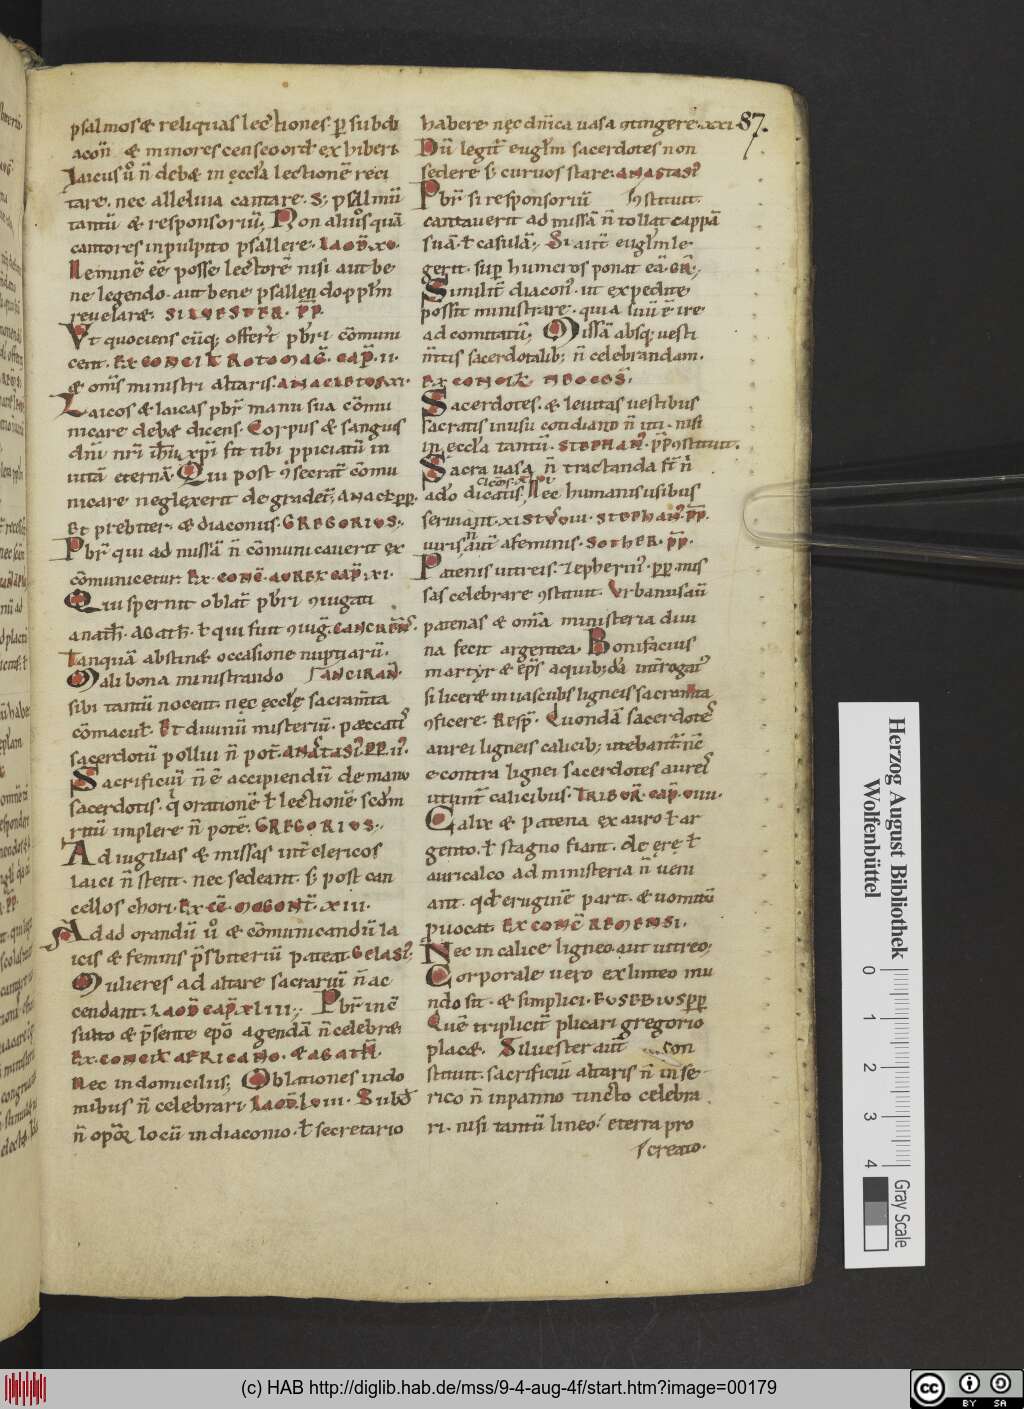 87.
psalmos & reliquas lectiones p̄ subdi
acoñ & minores censeo ord̄ exhiberi.
Laicus ů ñ deb& in eccl̄a lectionē reci
tare. nec alleluia cantare. S; psalmū
tantū & responsoriū; Non alius quā
cantores in pulpito psallere. LAOD̄.XV.
Neminē eē posse lectorē nisi aut be
ne legendo. aut bene psallendo ppl̄m
revelare. SILVESTER. PP̄.
Vt quociens cūq; offert̄ pb̄ri cōmuni
cent. EX CONCIL ROTOMAG̃. CAP̄. II.
& om̄s ministri altaris. ANACLETUS. XI.
Laicos & laicas pb̄r manu sua cōmu
nicare deb& dicens. Corpus & sanguis
dn̄i nr̄i ih̄u xp̄i sit tibi ppiciatū in
uitā eternā. Qui post ɔsecrat̄ cōmu
nicare neglexerit degradet̄; ANACL̄ PP̄.
Et presbiter. & diaconus. GREGORIUS;
Pb̄r qui ad missā ñ cōmunicauerit ex
cōmunicetur. EX. CONC̄. AUREX CAP̄. XI.
Qui spernit oblat̄ pb̄ri ɔiugati
anath̄. AGATH̄. ł qui fuit ɔiug̃. CANGREÑ.
Tanquā abstin& occasione nuptiarū.
Mali bona ministrando ANCIRAÑ.
sibi tantū nocent. nec eccl̄e sacram̄ta
cōmacul̄. Et diuinū misteriū. peccatis
sacerdotū pollui ñ pot̄. ANASTASI' PP. II'.
Sacrificiū ñ ē accipiendū de manu
sacerdotis. q̇ orationē ł lectionē scd̄m
ritū implere ñ potē. GREGORIUS;
Ad uigilias & missas int̄ clericos
laici ñ stent. nec sedeant. s; post can
cellos chori. EX CC̄. MOGONT̄. XIII.
Ad ad orandū ů & cōmunicandū la
icis & feminis p̄sbiteriū pateat. GELASI';
Mulieres ad altare sacrariū ñ ac
cendant. LAOD̄ CAP̄. XLIIII; Pb̄r inē
sulto & p̄sente ep̄o agendā ñ celebr&
EX. CONCIL̄ AFRICANO. & AGATH̄.
Nec in domiciliis; Oblationes in do
mibus ñ celebrari. LAOD̄. LVIII. Subd̄
ñ opor& locū in diaconio. ł secretario
habere nec dn̄ica uasa ɔtingere. XXI.
Dū legit̄ eugl̄m sacerdotes non
sedere s; curuos stare. ANASTASI'
Pb̄r si responsoriū Instituit.
cantauerit ad missā ñ tollat cappā
suā. ł casulā; Si aut̄ eugl̄m le
gerit. sup̄ humeros ponat eā. GR̄;
Similit̄ diacon'. ut expedite
possit ministrare. quia suū ē ire
ad comitatū; Missā absq; uesti
m̄tis sacerdotalib; ñ celebrandam.
EX CONCIL̄ NEOCES̄.
Sacerdotes. & leuitas uestibus
sacratis in usu cotidiano ñ uti. nisi
in eccl̄a tantū. STEPHAN'. PP̄ ɔstituit.
Sacra uasa ñ tractanda st̄ ñ
ad'o dicatis; Nec humanis usibus
seruiant. XISTVS VIII. STEPHAN'. PP̄.
uiris aut̄ a feminis. SOTHER. PP̄.
Patenis uitreis. Zepherin'. pp. mis
sas celebrare ɔstituit. Vrbanus aū
patenas & om̄ia ministeria diui
na fecit argentea. Bonifacius
martyr & ep̄s a quibd̄a int̄rogat'
si licer& in uasculis ligneis sacram̄ta
ɔficere. Resp̄. Quondā sacerdotes
aurei ligneis calicib; utebant̄ nc̄
e contra lignei sacerdotes aureis
utunt̄ calicibus. TRIBUR̄. CAP̄. VIIII.
Calix & patena ex auro ł ar
gento. ł stagno fiant. de ere ł
auricalco ad ministeria ñ ueni
ant. qd̄ eruginē parit. & uomitū
puocat. EX CONC̄ REMENSI.
Nec in calice ligneo aut uitreo;
Corporale uero ex linteo mu
ndo sit. & simplici. EUSEBIUS PP
Quē triplicit̄ plicari gregorio
plac&. Siluester aut̄ con
stituit. sacrificiū altaris ñ in se
rico ñ in panno tincto celebra
ri. nisi tantū lineo. e terra pro
creato.
Herzog August Bibliothek
Wolfenbüttel
0 1 2 3 4
Gray Scale
(c) HAB http://diglib.hab.de/mss/9-4-aug-4f/start.htm?image=00179
cc BY SA